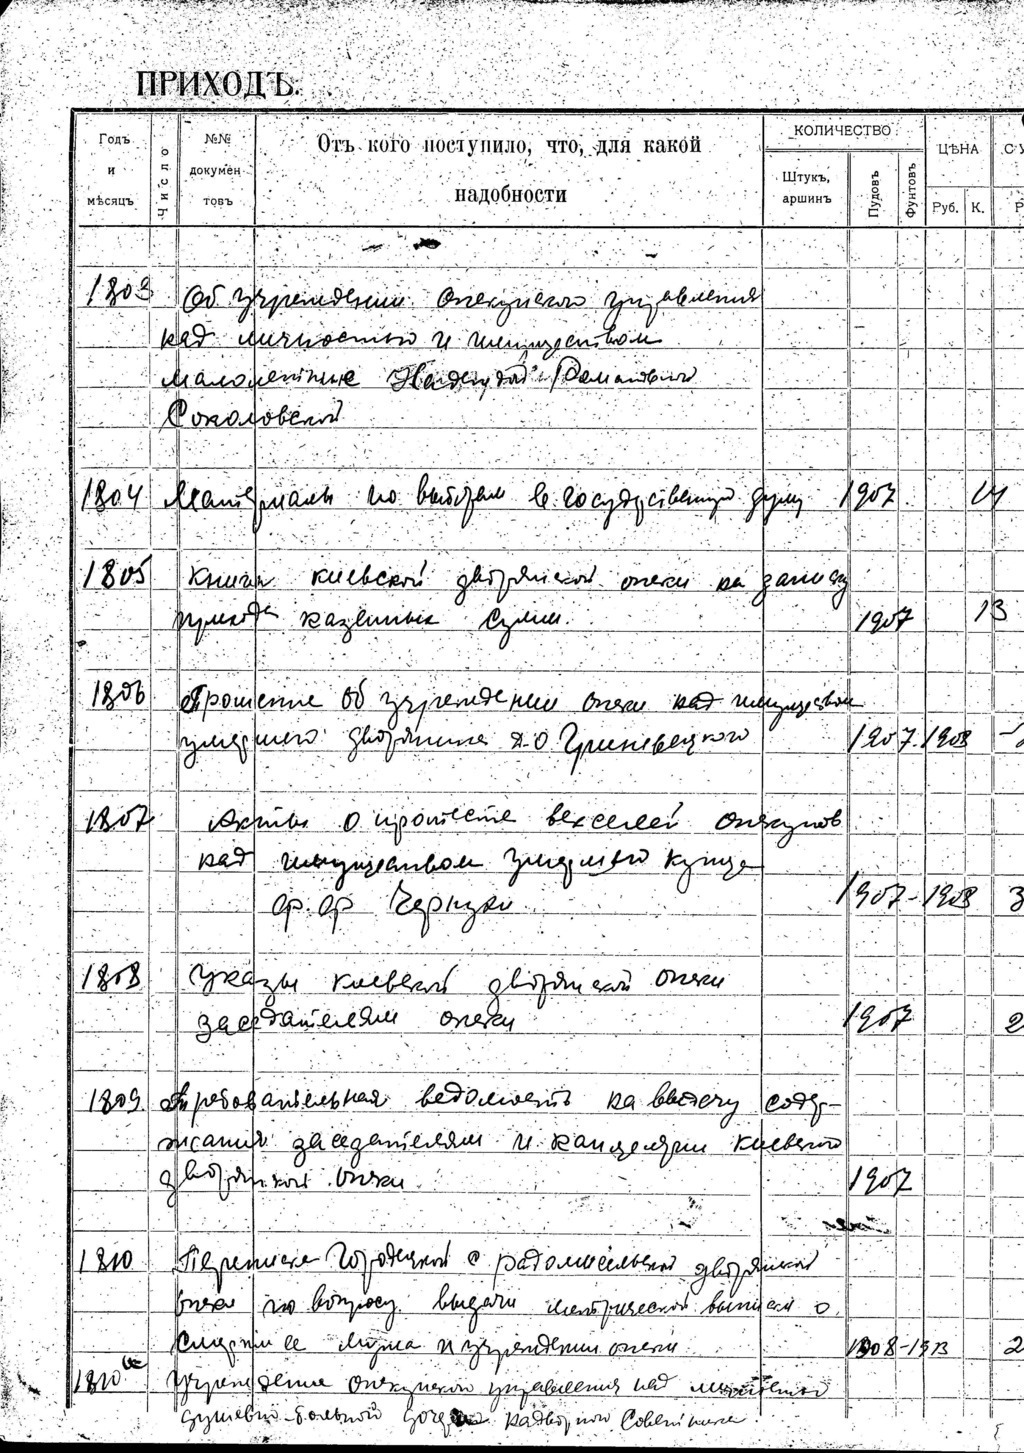 ПРИХОДЪ.
Годъ и мѣсяцъ
Число
№№ докумен товъ
Отъ кого поступило, что, для какой надобности
КОЛИЧЕСТВО
Штукъ, аршинъ
Пудовъ
Фунтовъ
ЦѢНА
Руб. К.
1803 Об учреждении опекунского управления
над личностью и имуществом
малолетние Надежды Романовной
Соколовской
1804 Материалы по выборам в государственную думу 1907 14
1805 Книга киевской дворянской опеки на записку
прихода казенных сумм. 1907 13
1806 Прошение об учреждении опеки над имуществом
умершего дворянина Гриневецкого 1907-1908
1807 Акты о протесте векселей опекунов
над имуществом умершего купца
Ф.Ф 1907-1908 3
1808 Указы киевской дворянской опеки
заседателям опеки 1907 2
1809 Требовательная ведомость на выдачу содер-
жания заседателям и канцелярии киевской
дворянской опеки. 1907
1810 Переписка Городецкой с радомысельской дворянской
опеке по вопросу выдачи метрической выписи о
смерти ее мужа и учреждении опеки 1908-1913 2
1810 Учреждение опекунского управления над
душевно-больной дочерью надворного Советника